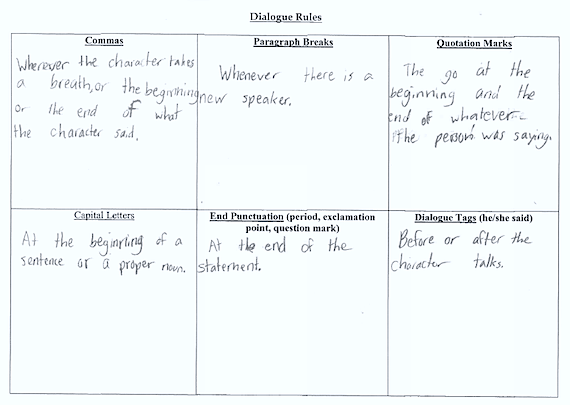 Dialogue Rules
Commas
Wherever the character takes
a breath, or the beginning
or the end of what
the character said.
Paragraph Breaks
Whenever there is a
new speaker.
Quotation Marks
The go at the
beginning and the
end of whatever
the person was saying.
Capital Letters
At the beginning of a
sentence or a proper noun.
End Punctuation (period, exclamation
point, question mark)
At the end of the
statement.
Dialogue Tags (he/she said)
Before or after the
character talks.